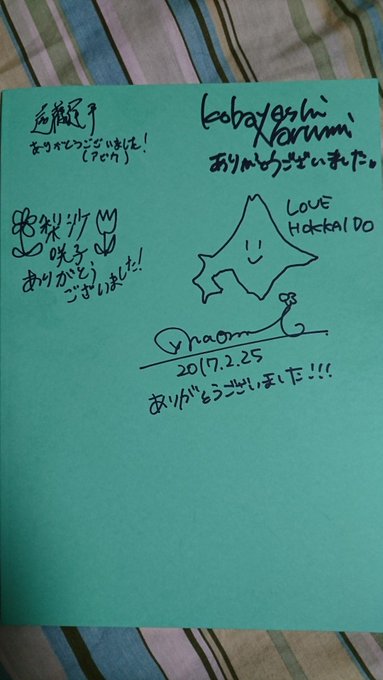 ありがとうございました!
(アビゥ)
Kobayashi
Narumi
ありがとうございました。
梨沙
咲子
ありがとう
ございました!
LOVE
HOKKAIDO
naomi
2017.2.25
ありがとうございました!!!